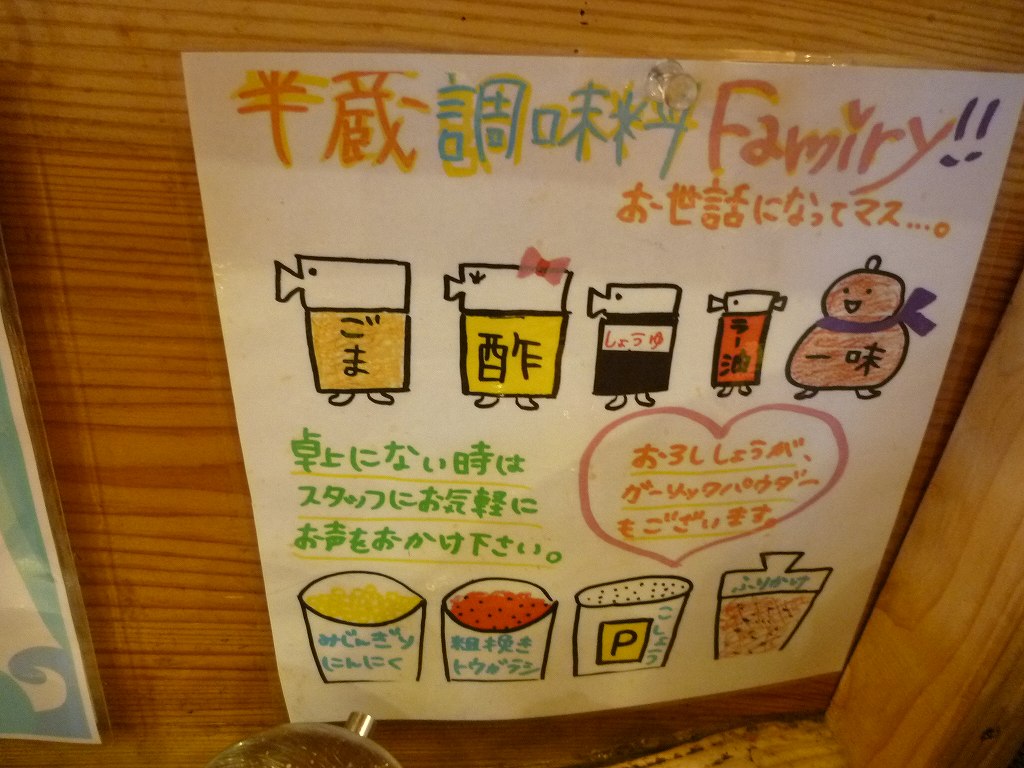 半蔵調味料Famiry!!
お世話になってマス…。
ごま
酢
しょうゆ
ラー油
一味
卓上にない時は
スタッフにお気軽に
お声をおかけ下さい。
おろししょうが、
ガーリックパウダー
もございます。
みじんぎり
にんにく
粗挽き
トウガラシ
P
こしょう
ふりかけ